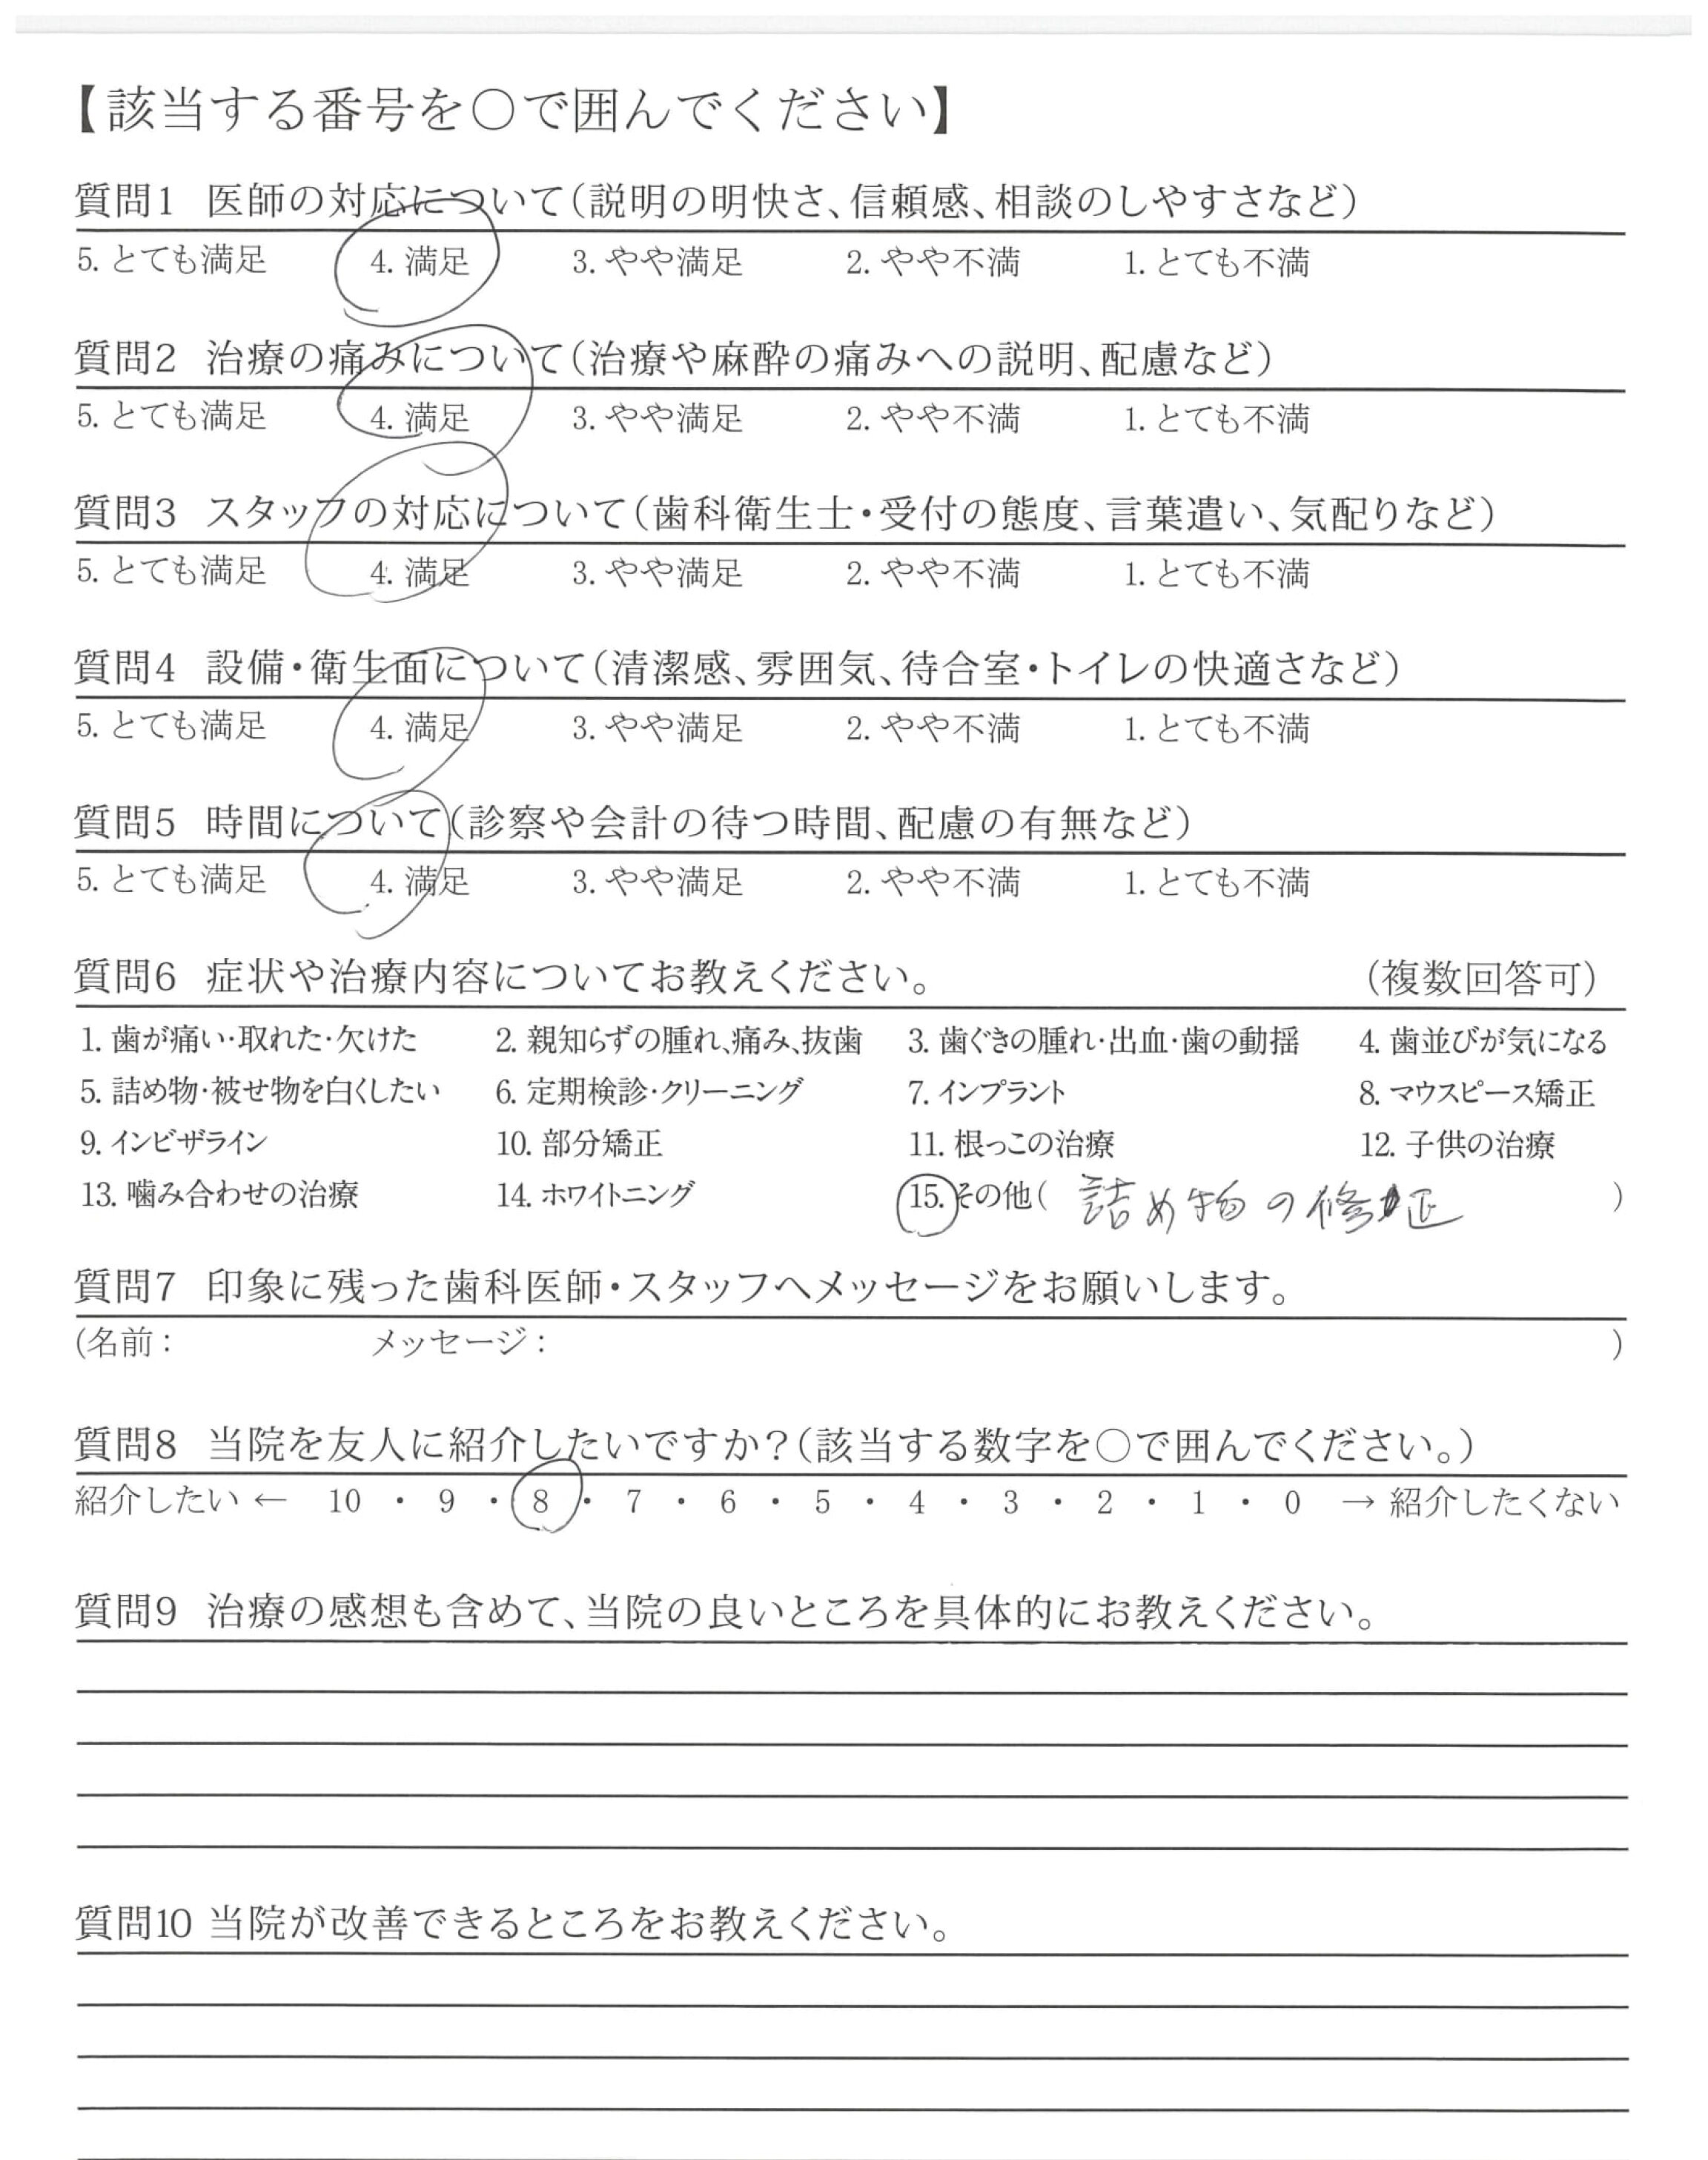 【該当する番号を○で囲んでください】
質問1 医師の対応について(説明の明快さ、信頼感、相談のしやすさなど)
5. とても満足 4. 満足 3. やや満足 2. やや不満 1. とても不満
質問2 治療の痛みについて(治療や麻酔の痛みへの説明、配慮など)
5. とても満足 4. 満足 3. やや満足 2. やや不満 1. とても不満
質問3 スタッフの対応について(歯科衛生士・受付の態度、言葉遣い、気配りなど)
5. とても満足 4. 満足 3. やや満足 2. やや不満 1. とても不満
質問4 設備・衛生面について(清潔感、雰囲気、待合室・トイレの快適さなど)
5. とても満足 4. 満足 3. やや満足 2. やや不満 1. とても不満
質問5 時間について(診察や会計の待つ時間、配慮の有無など)
5. とても満足 4. 満足 3. やや満足 2. やや不満 1. とても不満
質問6 症状や治療内容についてお教えください。 (複数回答可)
1. 歯が痛い・取れた・欠けた 2. 親知らずの腫れ、痛み、抜歯 3. 歯ぐきの腫れ・出血・歯の動揺 4. 歯並びが気になる
5. 詰め物・被せ物を白くしたい 6. 定期検診・クリーニング 7. インプラント 8. マウスピース矯正
9. インビザライン 10. 部分矯正 11. 根っこの治療 12. 子供の治療
13. 噛み合わせの治療 14. ホワイトニング 15. その他( 詰め物の修正 )
質問7 印象に残った歯科医師・スタッフへメッセージをお願いします。
(名前: メッセージ: )
質問8 当院を友人に紹介したいですか?(該当する数字を○で囲んでください。)
紹介したい ← 10 ・ 9 ・ 8 ・ 7 ・ 6 ・ 5 ・ 4 ・ 3 ・ 2 ・ 1 ・ 0 → 紹介したくない
質問9 治療の感想も含めて、当院の良いところを具体的にお教えください。
質問10 当院が改善できるところをお教えください。